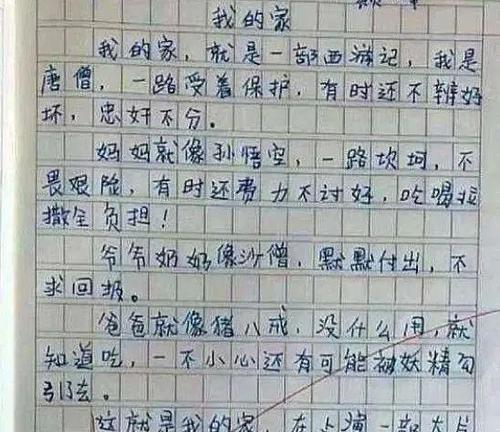 我的家
我的家，就是一部西游记，我是
唐僧，一路受着保护，有时还不辨好
坏，忠奸不分。
妈妈就像孙悟空，一路坎坷，不
畏艰险，有时还费力不讨好，吃喝拉
撒全负担！
爷爷奶奶像沙僧，默默付出，不
求回报。
爸爸就像猪八戒，没什么用，就
知道吃，一不小心还有可能被妖精勾
引去。
这就是我的家，在上演一部大片